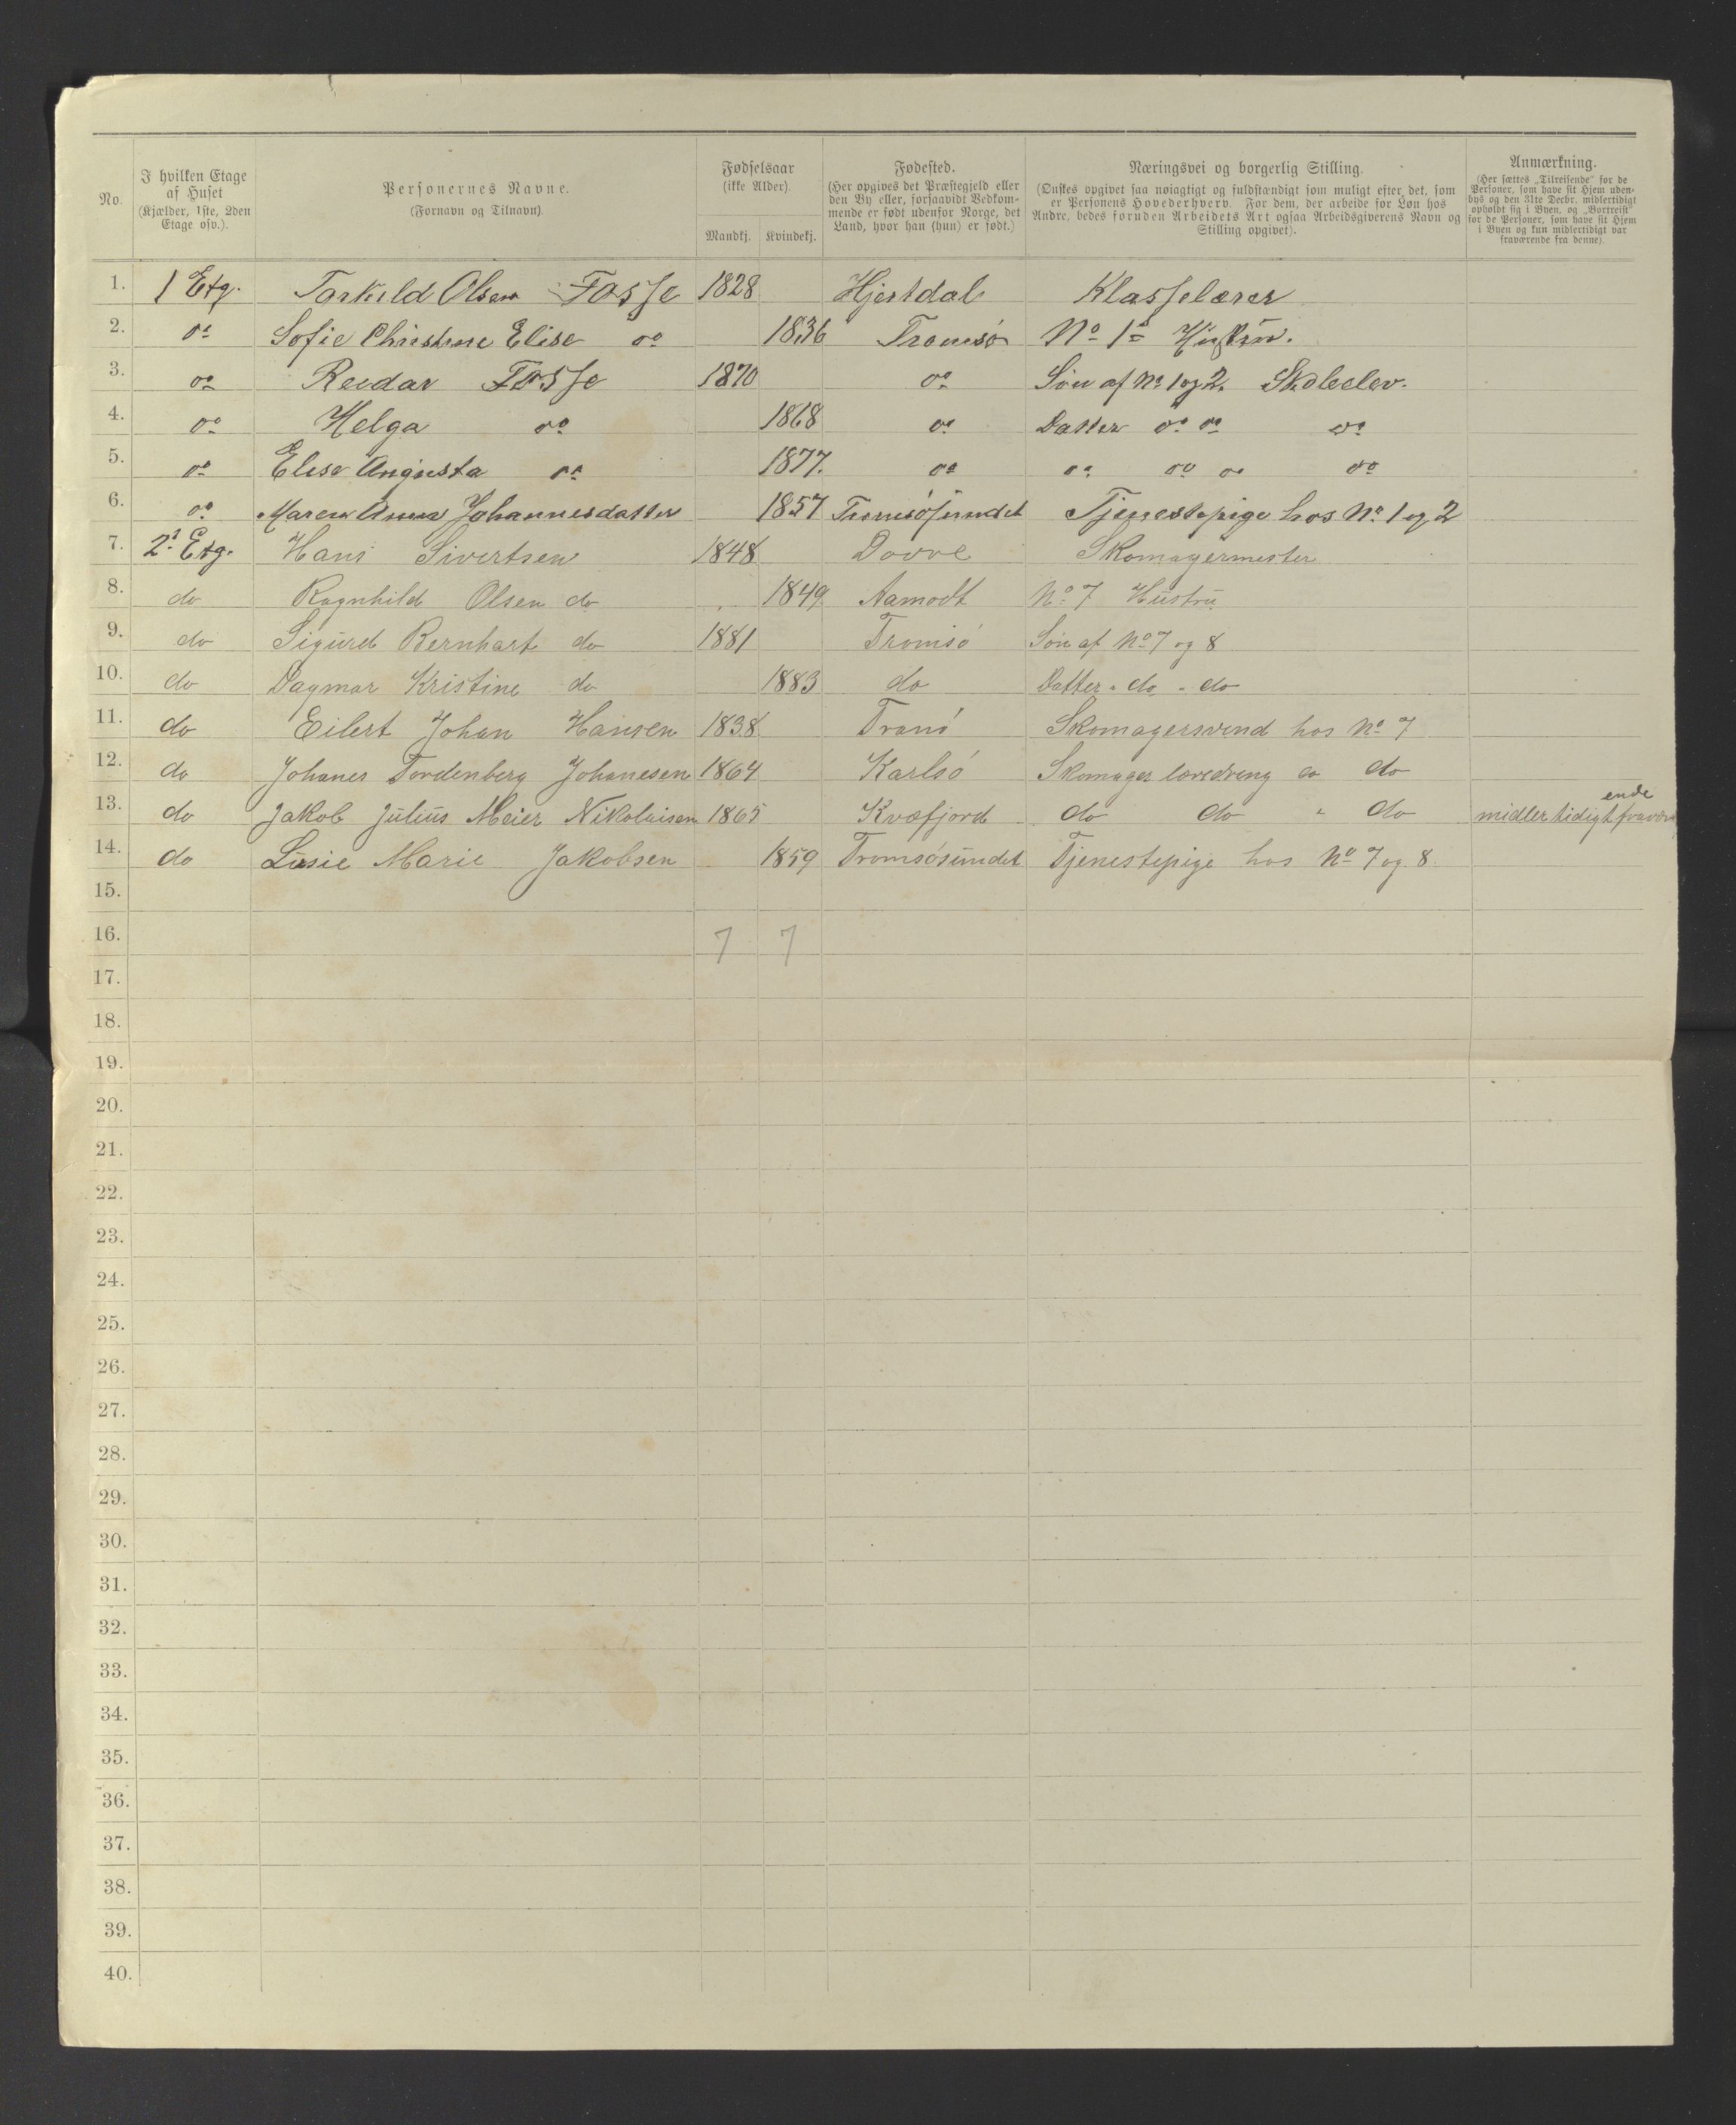 No.
I hvilken Etage
af Huset
(Kjælder, 1ste, 2den
Etage osv.).
Personernes Navne.
(Fornavn og Tilnavn)
Fødselsaar
(ikke Alder)
Mandkj. Kvindekj.
Fødested.
(Her opgives det Præstegjeld eller
den By eller, forsaavidt Vedkom-
mende er født udenfor Norge, det
Land, hvor han (hun) er født.)
Næringsvei og borgerlig Stilling.
(Ønskes opgivet saa nøiagtigt og fuldstændigt som muligt efter det, som
er Personens Hovederhverv. For dem, der arbeide for Løn hos
Andre, bedes foruden Arbeidets Art ogsaa Arbeidsgiverens Navn og
Stilling opgivet).
Anmærkning.
(Her sættes „Tilreisende" for de
Personer, som have sit Hjem uden-
bys og den 31te Decbr. midlertidigt
opholdt sig i Byen, og „Bortreist"
for de Personer, som have sit Hjem
i Byen og kun midlertidigt var
fraværende fra denne).
1. 1 Etg. Torkild Olsen Fosse 1828 Hjertdal Klasselærer
2. do Sofie Christine Elise do 1836 Tromsø No 1s Hustru.
3. do Reidar Fosse 1870 do Søn af No 1 og 2. Skoleelev.
4. do Helga do 1868 do Datter do do do
5. do Elise Augusta do 1877. do do do do do
6. do Maren Anna Johannesdatter 1857 Tromsøsundet Tjenestepige hos No 1 og 2
7. 2. Etg. Hans Sivertsen 1848 Dovre Skomagermester
8. do Ragnhild Olsen do 1849 Aamodt No 7 Hustru
9. do Sigurd Bernhart do 1881 Tromsø Søn af No 7 og 8
10. do Dagmar Kristine do 1883 do Datter " do " do
11. do Eilert Johan Hansen 1838 Tranø Skomagersvend hos No 7
12. do Johanes Tordenberg Johanesen 1864 Karlsø Skomager læredreng do do
13. do Jakob Julius Meier Nikolaisen 1865 Kvæfjord do do " do midlertidigt fraværende
14. do Lusie Marie Jakobsen 1859 Tromsøsundet Tjenestepige hos No 7 og 8
15.
16. 7 7
17.
18.
19.
20.
21.
22.
23.
24.
25.
26.
27.
28.
29.
30.
31.
32.
33.
34.
35.
36.
37.
38.
39.
40.